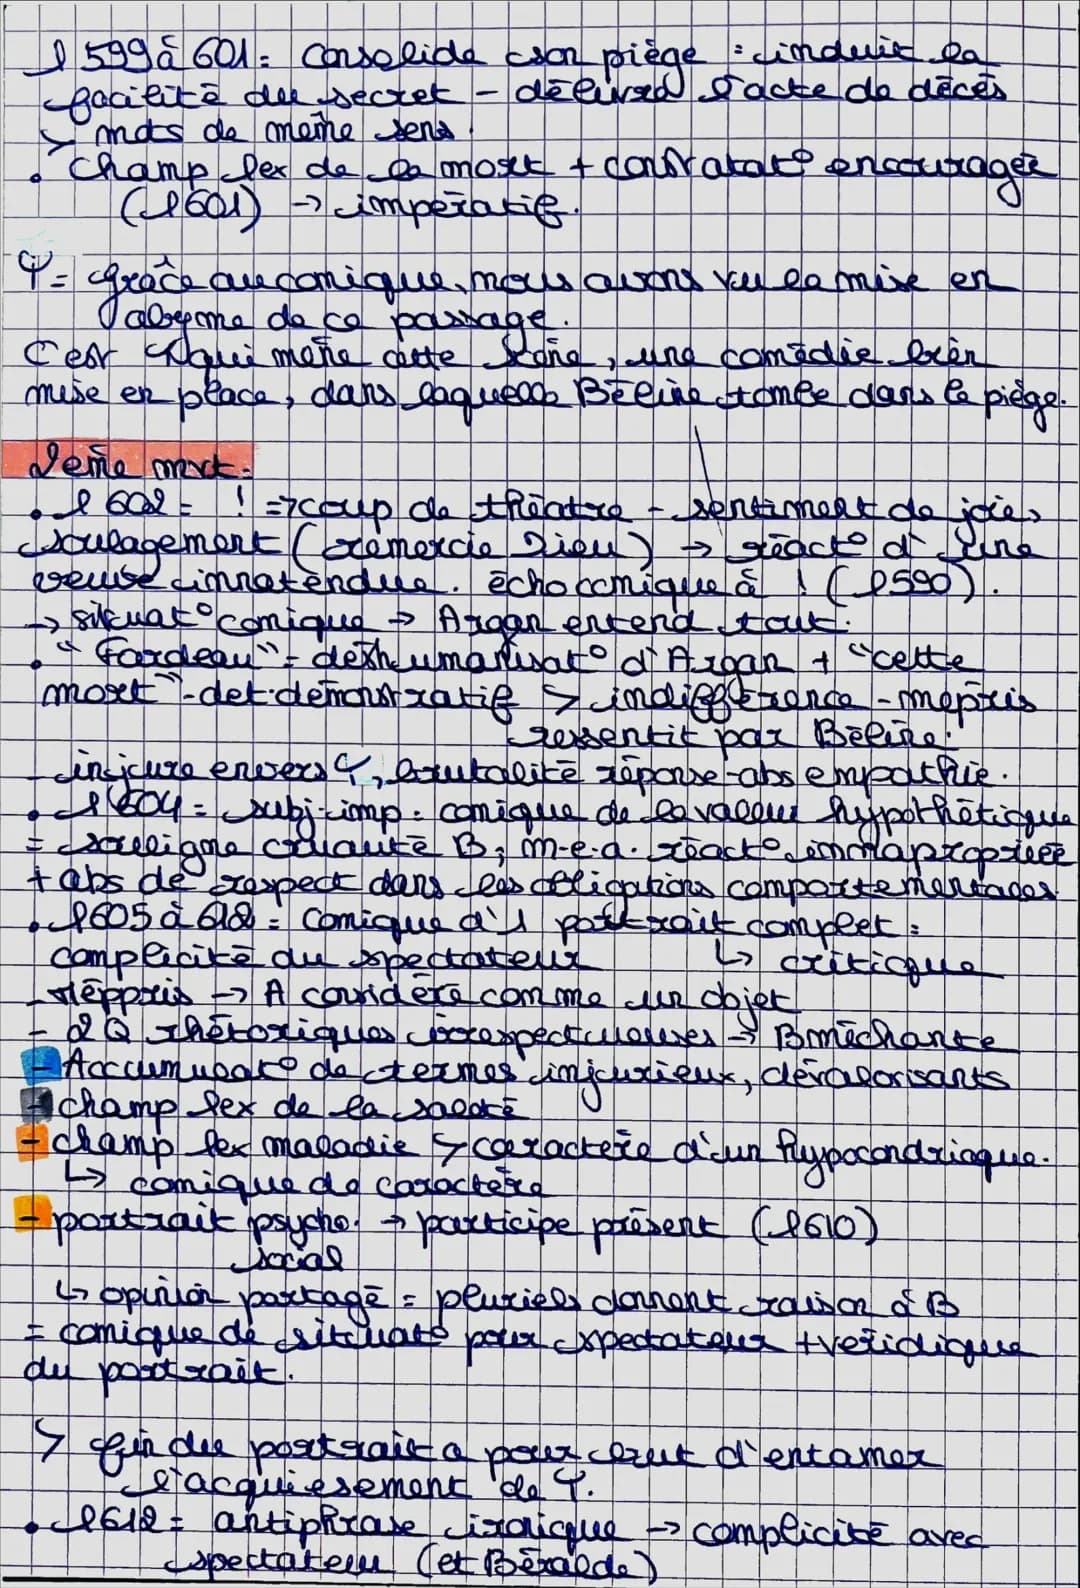 l 599 à 601 = Consolide son piège : induit la
facilité du secret - délivra l'acte de décès
> mots de même sens.
• Champ lex de la mort + constatat° encouragée
(l601) → impératif.
Ψ = Grâce au comique, nous avons vu la mise en
abyme de ce passage.
C'est T qui mène cette scène, une comédie bien
mise en place, dans laquelle Béline tombe dans le piège.
2ème mvt :
• l 602 = ! => coup de théâtre - sentiment de joie,
soulagement (remercie Dieu) → réact° d'une
veuve innatendue. écho comique à ! (l590).
→ situat° comique → Argan entend tout.
• "Fardeau" = déshumanisat° d'Argan + "cette
mort" - det. démonstratif > indifférence - mépris
ressentit par Béline.
- injure envers Ψ, brutalité réponse - abs empathie.
• l 604 = subj. imp. comique de la valeur hypothétique
= souligne cruauté B, m.e.a. réact° innapropriée
+ abs de respect dans les obligations comportementales.
• l605 à 612 = comique d'1 portrait complet :
complicité du spectateur ↳ critique
- méppris → A considéré comme un objet
- 2 Q rhétoriques irrespectueuses → B méchante
- Accumulat° de termes injurieux, dévalorisants
- champ lex de la saleté
- champ lex maladie > caractère d'un hypocondriaque.
↳ comique de caractère
- portrait psycho. → participe présent (l610)
social
↳ opinion partagé = pluriels donnent raison à B
= comique de situat° pour spectateur + véridique
du portrait.
> fin du portrait a pour but d'entamer
l'acquiesement de Ψ.
• l612 = antiphrase ironique → complicité avec
spectateur (et Béralde)